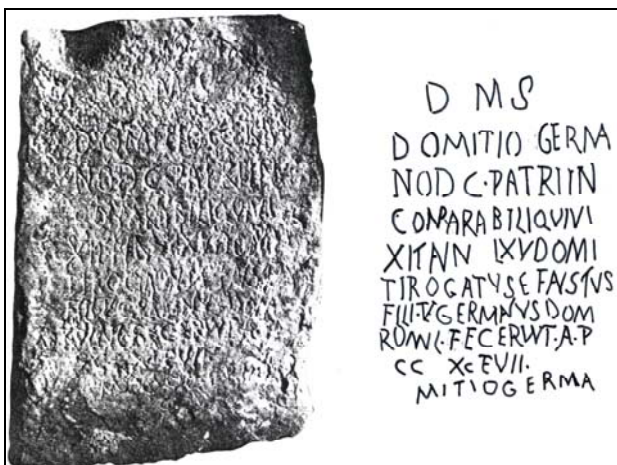 D M S
D OMITIO GERMA
NOD C·PATRIIN
CONPARABILIQUIVI
XITANN LXVDOMI
TIROGATVSEFAVSTVS
FILI·
GERMANVSDOM
FECERVNT·A·P
CC XCEVII·
MITIOGERMA